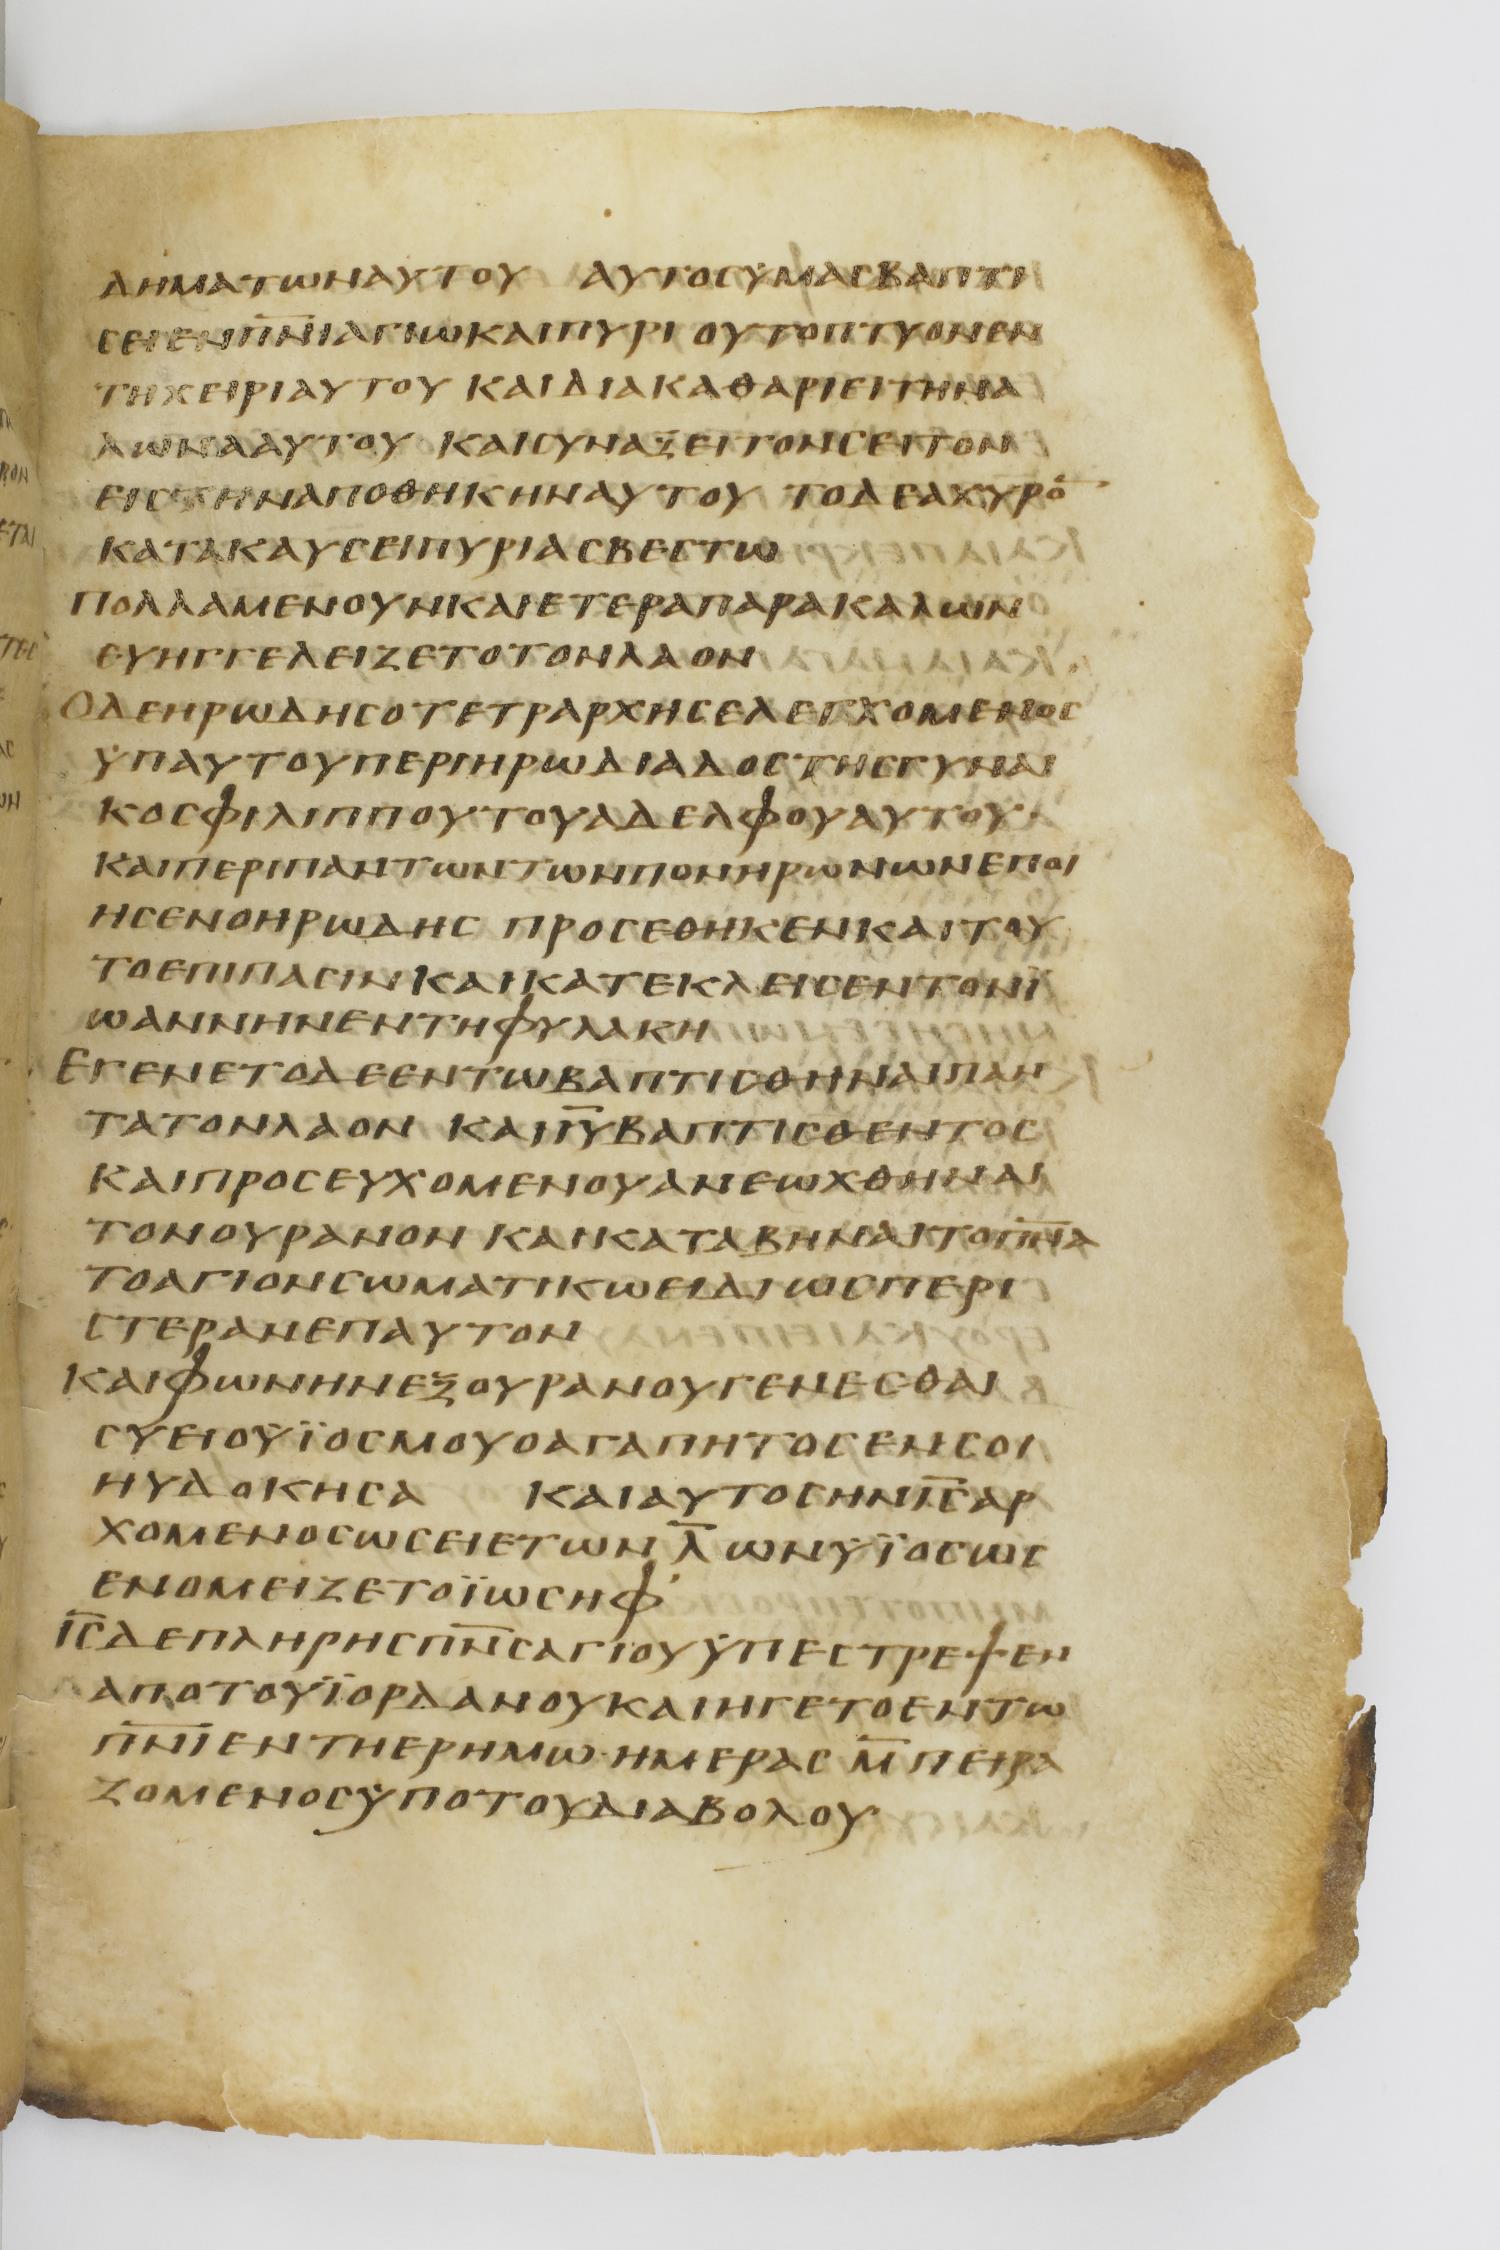 ΔΗΜΑΤΩΝΑΥΤΟΥ ΑΥΤΟСΥΜΑСΒΑΠΤΙ
СΕΙΕΝΠ̅Ν̅ΙΑΓΙΩΚΑΙΠΥΡΙ ΟΥΤΟΠΤΥΟΝΕΝ
ΤΗΧΕΙΡΙΑΥΤΟΥ ΚΑΙΔΙΑΚΑΘΑΡΙΕΙΤΗΝΑ
ΛΩΝΑΑΥΤΟΥ ΚΑΙСΥΝΑΞΕΙΤΟΝСΕΙΤΟΝ
ΕΙСΤΗΝΑΠΟΘΗΚΗΝΑΥΤΟΥ ΤΟΔΕΑΧΥΡΟ̅
ΚΑΤΑΚΑΥСΕΙΠΥΡΙΑСΒΕСΤΩ
ΠΟΛΛΑΜΕΝΟΥΝΚΑΙΕΤΕΡΑΠΑΡΑΚΑΛΩΝ
ΕΥΗΓΓΕΛΕΙΖΕΤΟΤΟΝΛΑΟΝ
ΟΔΕΗΡΩΔΗСΟΤΕΤΡΑΡΧΗСΕΛΕΓΧΟΜΕΝΟС
ΥΠΑΥΤΟΥΠΕΡΙΗΡΩΔΙΑΔΟСΤΗСΓΥΝΑΙ
ΚΟСΦΙΛΙΠΠΟΥΤΟΥΑΔΕΛΦΟΥΑΥΤΟΥ·
ΚΑΙΠΕΡΙΠΑΝΤΩΝΤΩΝΠΟΝΗΡΩΝΩΝΕΠΟΙ
ΗСΕΝΟΗΡΩΔΗС ΠΡΟСΕΘΗΚΕΝΚΑΙΤΟΥ
ΤΟΕΠΙΠΑСΙΝΚΑΙΚΑΤΕΚΛΕΙСΕΝΤΟΝΙ
ΩΑΝΝΗΝΕΝΤΗΦΥΛΑΚΗ
ΕΓΕΝΕΤΟΔΕΕΝΤΩΒΑΠΤΙСΘΗΝΑΙΠΑΝ
ΤΑΤΟΝΛΑΟΝ ΚΑΙΙ̅Υ̅ΒΑΠΤΙСΘΕΝΤΟС
ΚΑΙΠΡΟСΕΥΧΟΜΕΝΟΥΑΝΕΩΧΘΗΝΑΙ
ΤΟΝΟΥΡΑΝΟΝ ΚΑΙΚΑΤΑΒΗΝΑΙΤΟΠ̅Ν̅Α
ΤΟΑΓΙΟΝСΩΜΑΤΙΚΩΕΙΔΙΩСΠΕΡΙ
СΤΕΡΑΝΕΠΑΥΤΟΝ
ΚΑΙΦΩΝΗΝΕΞΟΥΡΑΝΟΥΓΕΝΕСΘΑΙ
СΥΕΙΟΥΪΟСΜΟΥΟΑΓΑΠΗΤΟСΕΝСΟΙ
ΗΥΔΟΚΗСΑ ΚΑΙΑΥΤΟСΗΝΙ̅С̅ΑΡ
ΧΟΜΕΝΟСΩСΕΙΕΤΩΝΛ̅ΩΝΥΪΟСΩС
ΕΝΟΜΕΙΖΕΤΟΪΩСΗΦ'
Ι̅С̅ΔΕΠΛΗΡΗСΠ̅Ν̅СΑΓΙΟΥΫΠΕСΤΡΕΨΕΝ
ΑΠΟΤΟΥΪΟΡΔΑΝΟΥΚΑΙΗΓΕΤΟΕΝΤΩ
Π̅Ν̅ΙΕΝΤΗΕΡΗΜΩ·ΗΜΕΡΑСΜ̅ΠΕΙΡΑ
ΖΟΜΕΝΟСΫΠΟΤΟΥΔΙΑΒΟΛΟΥ·